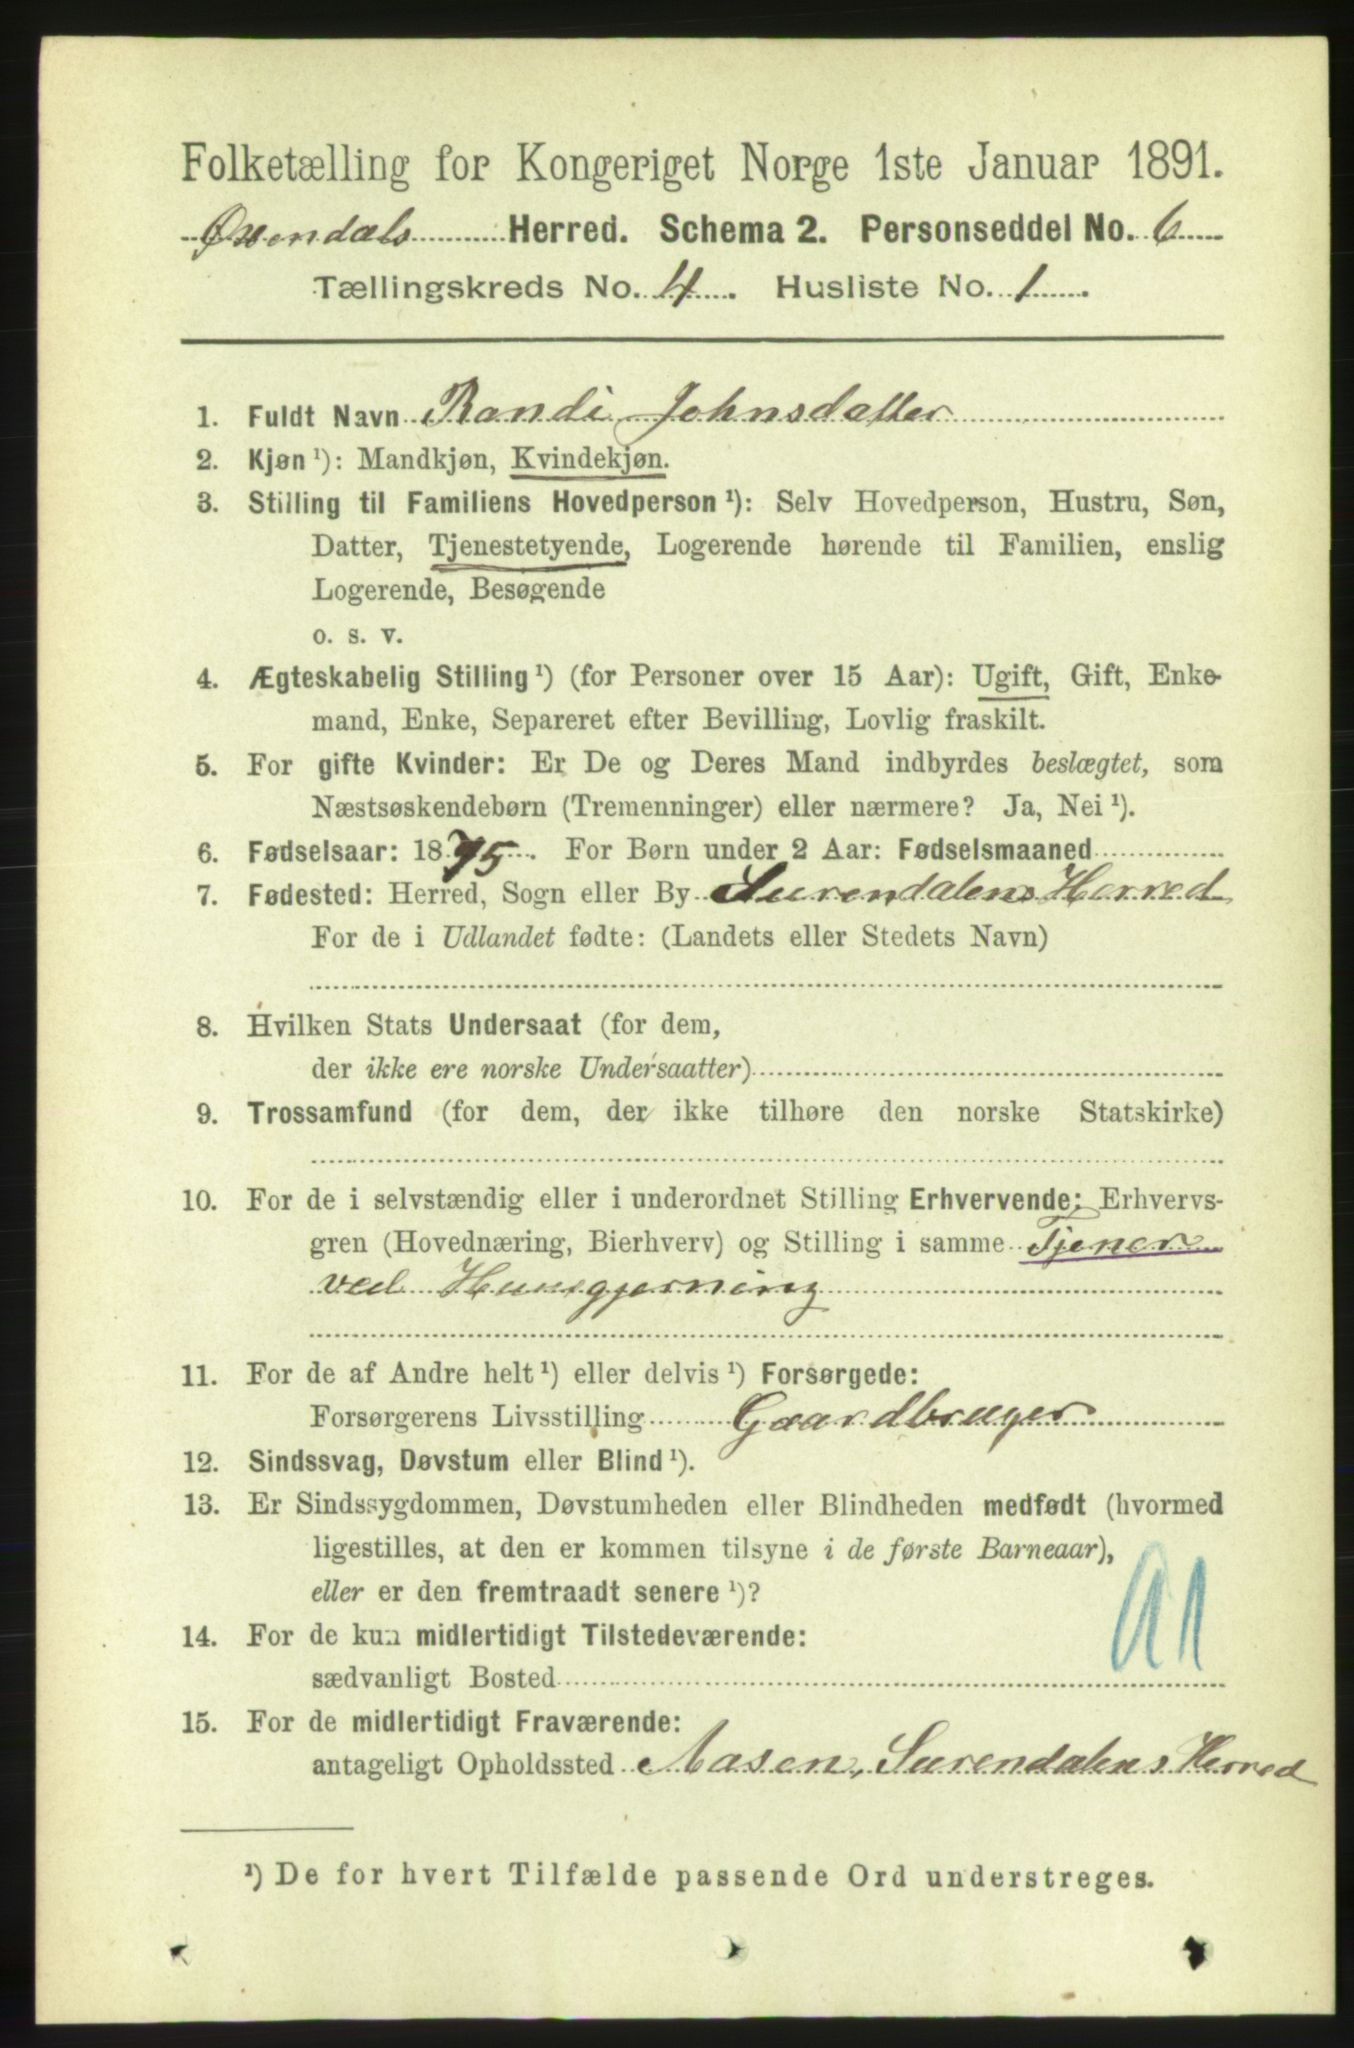 Folketælling for Kongeriget Norge 1ste Januar 1891.
Øxendals Herred. Schema 2. Personseddel No. 6
Tællingskreds No. 4. Husliste No. 1.
1. Fuldt Navn Randi Johnsdatter
2. Kjøn ¹): Mandkjøn, Kvindekjøn.
3. Stilling til Familiens Hovedperson ¹): Selv Hovedperson, Hustru, Søn,
Datter, Tjenestetyende, Logerende hørende til Familien, enslig
Logerende, Besøgende
o. s. v.
4. Ægteskabelig Stilling ¹) (for Personer over 15 Aar): Ugift, Gift, Enke-
mand, Enke, Separeret efter Bevilling, Lovlig fraskilt.
5. For gifte Kvinder: Er De og Deres Mand indbyrdes beslægtet, som
Næstsøskendebørn (Tremenninger) eller nærmere? Ja, Nei ¹).
6. Fødselsaar: 1875. For Børn under 2 Aar: Fødselsmaaned
7. Fødested: Herred, Sogn eller By Surendalens Herred
For de i Udlandet fødte: (Landets eller Stedets Navn)
8. Hvilken Stats Undersaat (for dem,
der ikke ere norske Undersaatter)
9. Trossamfund (for dem, der ikke tilhøre den norske Statskirke)
10. For de i selvstændig eller i underordnet Stilling Erhvervende: Erhvervs-
gren (Hovednæring, Bierhverv) og Stilling i samme Tjener
ved Huusgjerning
11. For de af Andre helt ¹) eller delvis ¹) Forsørgede:
Forsørgerens Livsstilling Gaardbruger
12. Sindssvag, Døvstum eller Blind ¹).
13. Er Sindssygdommen, Døvstumheden eller Blindheden medfødt (hvormed
ligestilles, at den er kommen tilsyne i de første Barneaar),
eller er den fremtraadt senere ¹)?
14. For de kun midlertidigt Tilstedeværende:
sædvanligt Bosted
15. For de midlertidigt Fraværende:
antageligt Opholdssted Aasen, Surendalens Herred
¹) De for hvert Tilfælde passende Ord understreges.